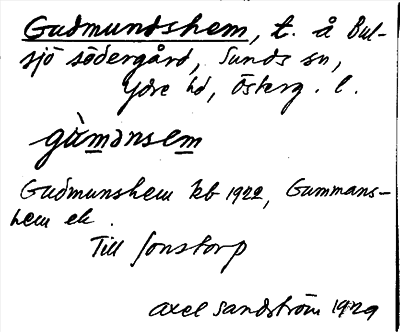 Gudmundshem, t. å Bul-
sjö södergård, Sunds sn,
Ydre hd, Österg. l.
gù̀mənsem
Gudmunshem kb 1922, Gummans-
hem ek.
Till Jonstorp
Axel Sandström 1929